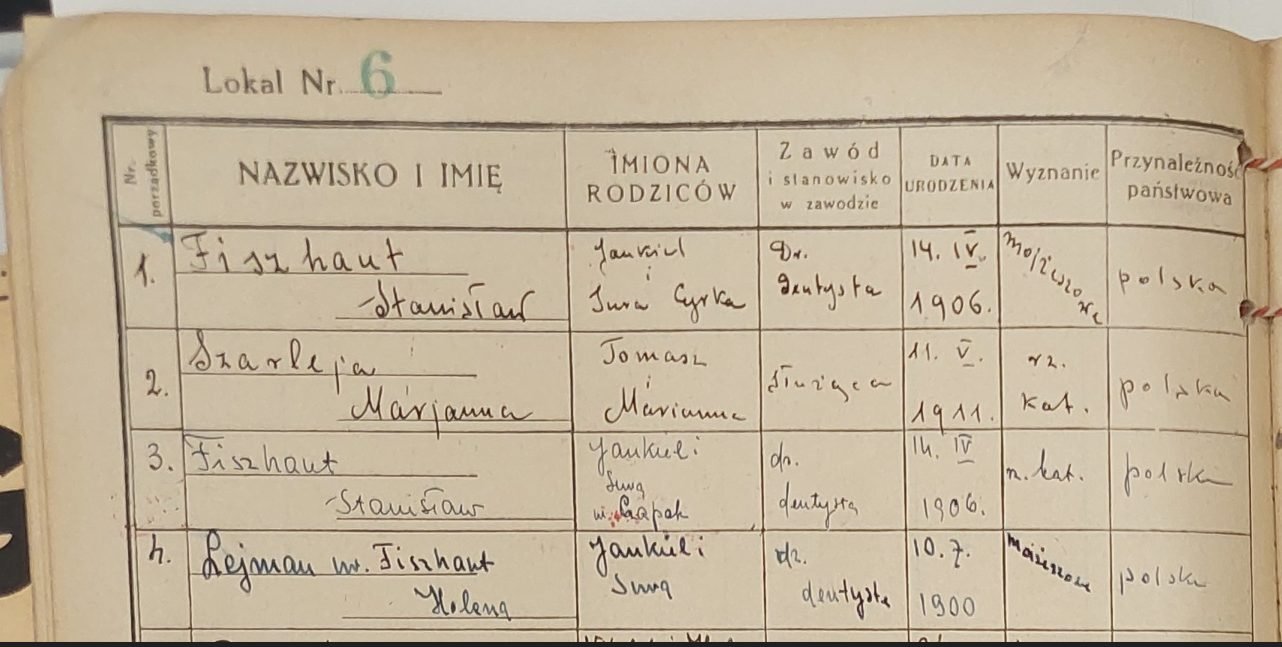 Lokal Nr. 6
Nr. porządkowy
NAZWISKO I IMIĘ
IMIONA RODZICÓW
Zawód i stanowisko w zawodzie
DATA URODZENIA
Wyznanie
Przynależność państwowa
1.
Fiszhaut
Stanisław
Jankiel
i
Sura Cyrka
Dr.
dentysta
14. IV.
1906.
mojżeszowe
polska
2.
Szarleja
Marjanna
Tomasz
i
Marianna
służąca
11. V.
1911.
rz.
kat.
polska
3.
Fiszhaut
Stanisław
Jankiel i
Sura
dr.
dentysta
14. IV
1906.
kat.
polska
4.
Lejman Fiszhaut
Helena
Jankiel i
Sura
dr.
dentysta
10. 7.
1900
polska